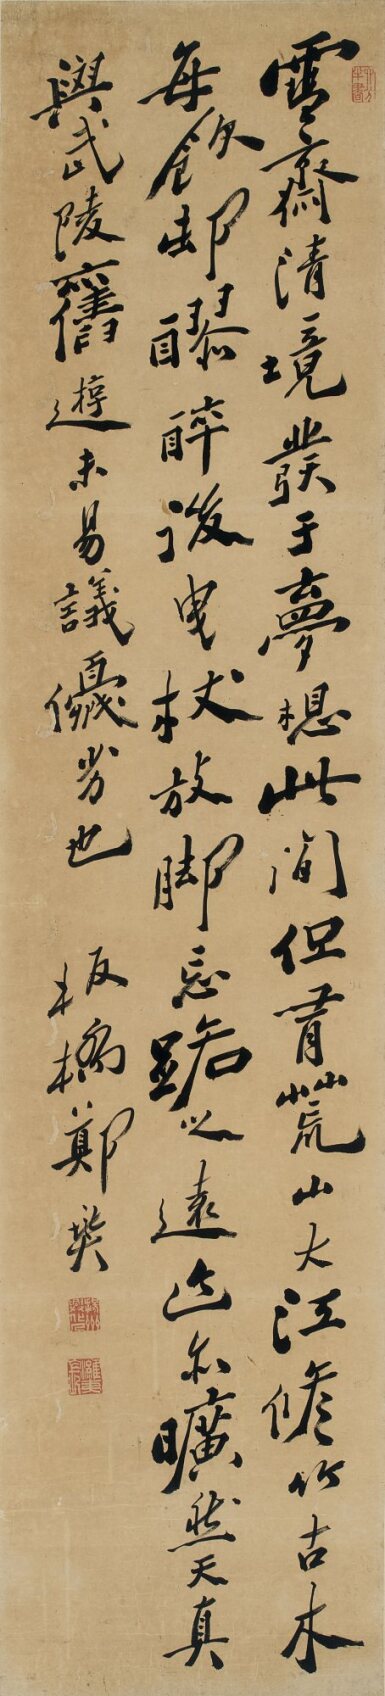 雪齋清境發于夢想此間但有荒山大江修竹古木
每飲邨醪醉後曳杖放脚忘路之遠近亦曠然天真
與武陵舊遊未易議優劣也 板橋鄭燮